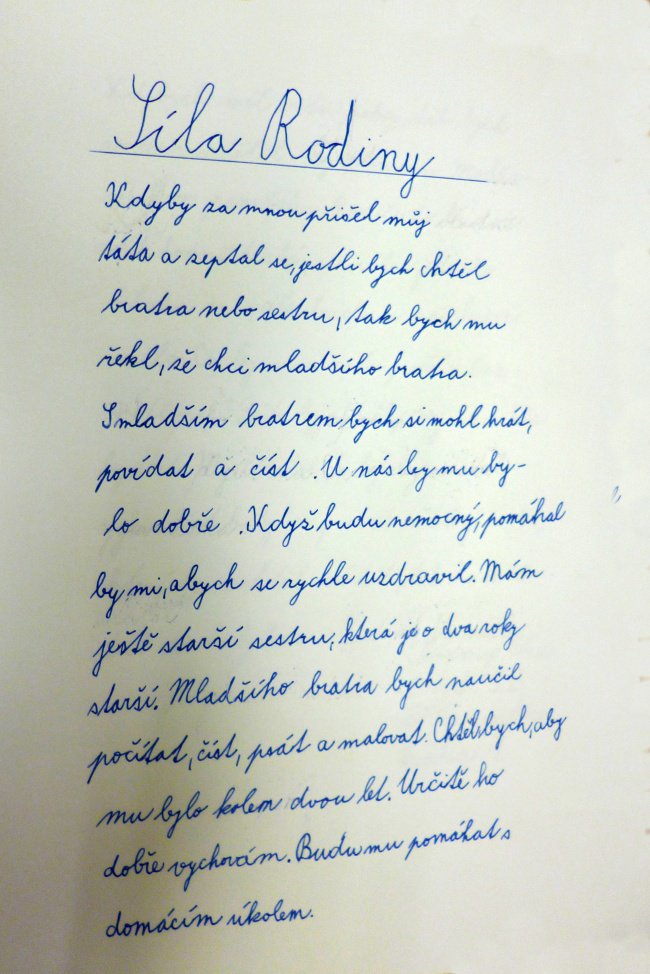 Síla Rodiny
Kdyby za mnou přišel můj
táta a zeptal se, jestli bych chtěl
bratra nebo sestru, tak bych mu
řekl, že chci mladšího bratra.
S mladším bratrem bych si mohl hrát,
povídat a číst . U nás by mu by-
lo dobře . Když budu nemocný, pomáhal
by mi, abych se rychle uzdravil. Mám
ještě starší sestru, která je o dva roky
starší. Mladšího bratra bych naučil
počítat, číst, psát a malovat. Chtěl bych, aby
mu bylo kolem dvou let. Určitě ho
dobře vychovám. Budu mu pomáhat s
domácím úkolem.